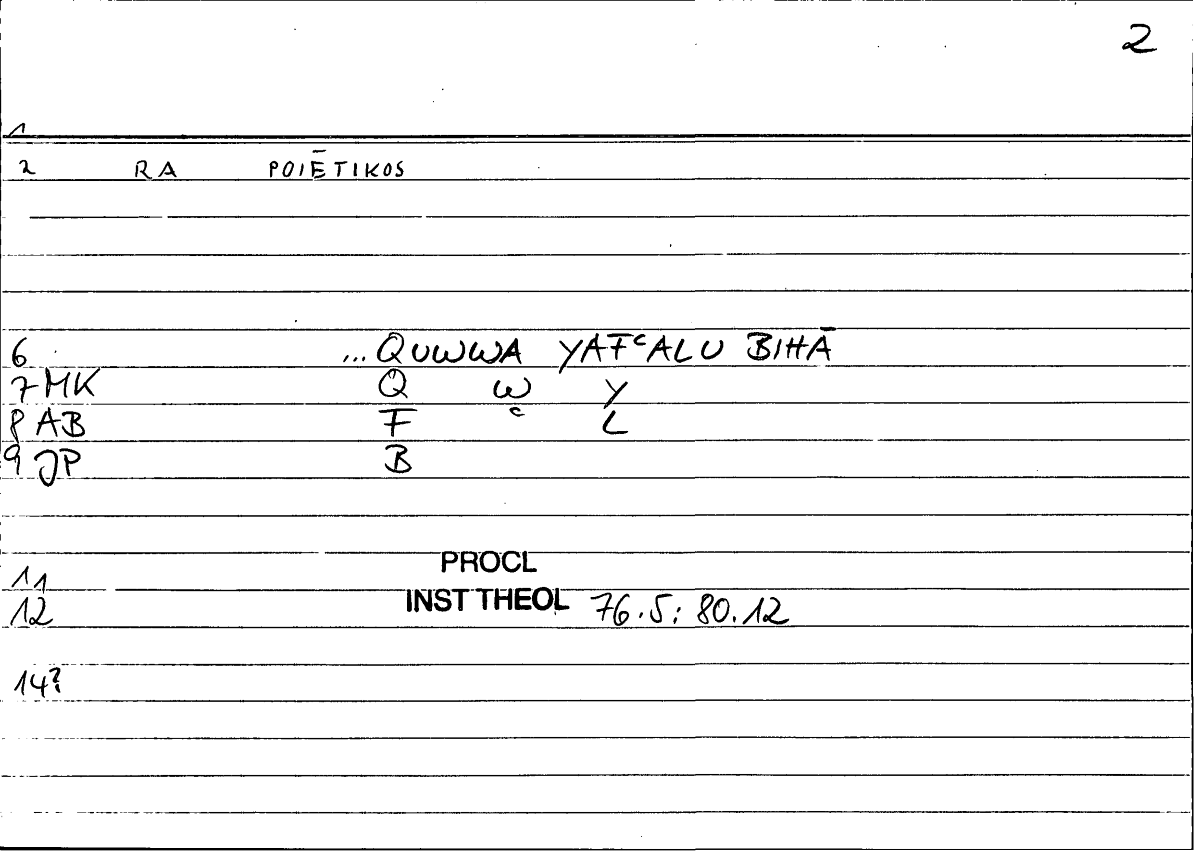 2
1
2 RA POIĒTIKOS
6 ... QUWWA YAFᶜALU BIHĀ
7 MK Q W Y
8 AB F ᶜ L
9 JP B
11 PROCL
12 INST THEOL 76.5: 80.12
14?